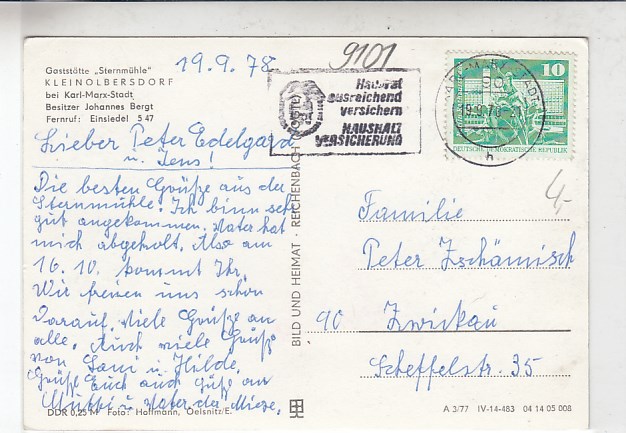 Gaststätte „Sternmühle"
KLEINOLBERSDORF
bei Karl-Marx-Stadt
Besitzer Johannes Bergt
Fernruf: Einsiedel 5 47
19.9.78
9101
Hausrat
ausreichend
versichern
HAUSHALT
VERSICHERUNG
10
DEUTSCHE DEMOKRATISCHE REPUBLIK
Lieber Peter Edelgard
u. Jens!
Die besten Grüße aus der
Sternmühle. Ich binn sehr
gut angekommen. Vater hat
mich abgeholt. Also am
16.10. kommt Ihr.
Wir freuen uns schon
darauf. Viele Grüße an
alle. Auch viele Grüße
von und Hilde.
Grüße Euch auch Güße an
Mutti u Vater der
4,-
Familie
Peter Zschämisch
90 Zwickau
Scheffelstr. 35
BILD UND HEIMAT · REICHENBACH
DDR 0,25 M Foto: Hoffmann, Oelsnitz/E.
A 3/77 IV-14-483 04 14 05 008